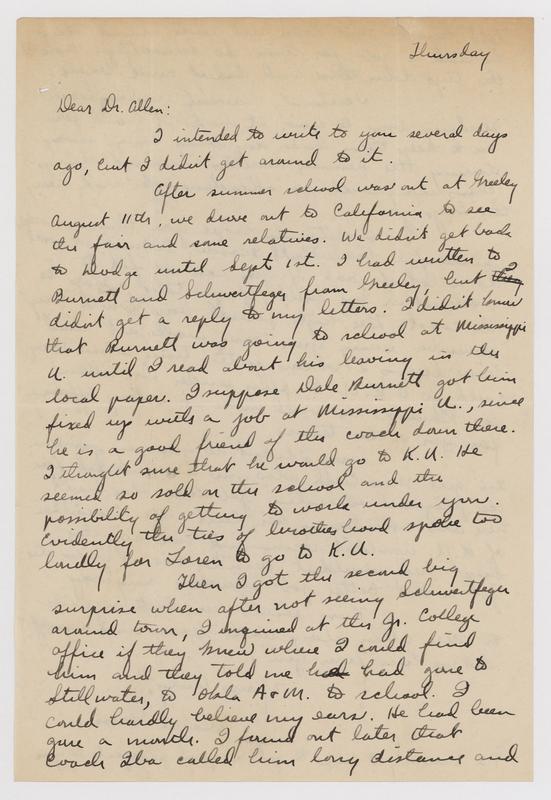 Thursday
Dear Dr. Allen:
I intended to write to you several days
ago, but I didn't get around to it.
After summer school was out at Greeley
August 11th, we drove out to California to see
the fair and some relatives. We didn't get back
to Dodge until Sept 1st. I had written to
Burnett and Schwertfeger from Greeley, but I
didn't get a reply to my letters. I didn't know
that Burnett was going to school at Mississippi
U. until I read about his leaving in the
local paper. I suppose Dale Burnett got him
fixed up with a job at Mississippi U., since
he is a good friend of the coach down there.
I thought sure that he would go to K.U. He
seemed so sold on the school and the
possibility of getting to work under you.
Evidently the ties of brotherhood spoke too
loudly for Loren to go to K.U.
Then I got the second big
surprise when after not seeing Schwertfeger
around town, I inquired at the Jr. College
office if they knew where I could find
him and they told me had had gone to
Stillwater, to Okla A+M. to school. I
could hardly believe my ears. He had been
gone a month. I found out later that
Coach Iba called him long distance and